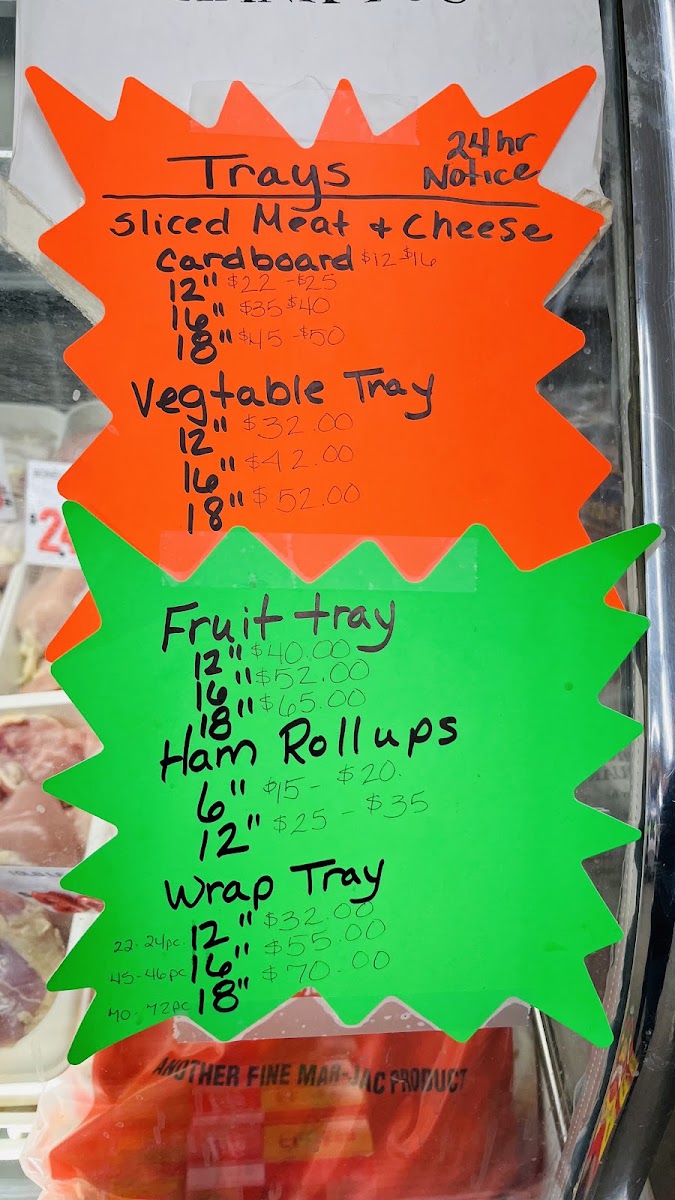 24hr
Trays Notice
Sliced Meat + Cheese
Cardboard $12 $16
12" $22 - $25
16" $35 $40
18" $45 - $50
Vegtable Tray
12" $32.00
16" $42.00
18" $52.00
Fruit tray
12" $40.00
16" $52.00
18" $65.00
Ham Rollups
6" $15 - $20.
12" $25 - $35
Wrap Tray
22-24pc 12" $32.00
45-46pc 16" $55.00
70-72pc 18" $70.00
ANOTHER FINE MAR-JAC PRODUCT